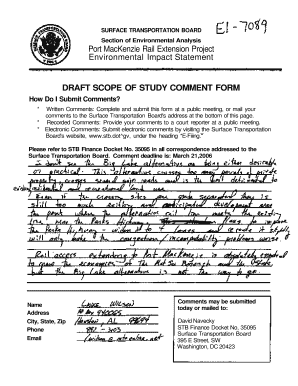 EI-7089
SURFACE TRANSPORTATION BOARD
Section of Environmental Analysis
Port MacKenzie Rail Extension Project
Environmental Impact Statement
DRAFT SCOPE OF STUDY COMMENT FORM
How Do I Submit Comments?
* Written Comments: Complete and submit this form at a public meeting, or mail your
comments to the Surface Transportation Board's address at the bottom of this page.
* Recorded Comments: Provide your comments to a court reporter at a public meeting.
* Electronic Comments: Submit electronic comments by visiting the Surface Transportation
Board's website, www.stb.dot.gov, under the heading "E-Filing."
Please refer to STB Finance Docket No. 35095 in all correspondence addressed to the
Surface Transportation Board. Comment deadline is: March 21, 2008
I don't see the Big Lake alternative as being either desirable
or practical. This alternative crosses too many parcels of private
property, crosses several main roads and is the most detrimental to
residential and recreational land use.
Even if the crossing sites were separated there is
still too much existing and anticipated development
the point where the alternative rail line meets the existing
line near the Parks Highway.
the Parks Highway - widen it to 4 lanes and reroute it slightly
will only make the congestion/incompatibility problems worse.
Rail access extending to Port MacKenzie is absolutely critical
to the economies of the Mat-Su Borough and the State,
but the Big Lake alternative is not the way to go.
Name
Address
City, State, Zip
Phone
Email
WILSON
Houston, AK 99694
Comments may be submitted
today or mailed to:
David Navecky
STB Finance Docket No. 35095
Surface Transportation Board
395 E Street, SW
Washington, DC 20423